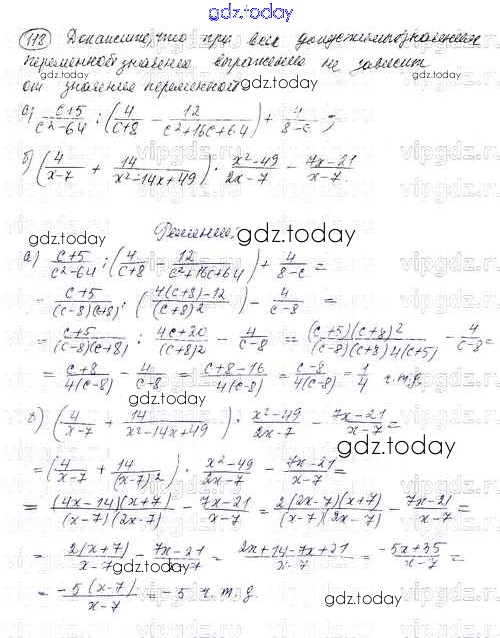 gdz.today
118 Докажите, что при всех допустимых значениях
переменной значение выражения не зависит
от значения переменной
а) (c+5)/(c²-64) : (4/(c+8) - 12/(c²+16c+64)) + 4/(8-c) ;
б) (4/(x-7) + 14/(x²-14x+49)) · (x²-49)/(2x-7) - (7x-21)/(x-7)
Решение.
а) (c+5)/(c²-64) : (4/(c+8) - 12/(c²+16c+64)) + 4/(8-c) =
= (c+5)/((c-8)(c+8)) : ((4(c+8)-12)/(c+8)²) - 4/(c-8) =
= (c+5)/((c-8)(c+8)) : (4c+20)/(c+8)² - 4/(c-8) = ((c+5)(c+8)²)/((c-8)(c+8)4(c+5)) - 4/(c-8) =
= (c+8)/(4(c-8)) - 4/(c-8) = (c+8-16)/(4(c-8)) = (c-8)/(4(c-8)) = 1/4 ч.т.д.
б) (4/(x-7) + 14/(x²-14x+49)) · (x²-49)/(2x-7) - (7x-21)/(x-7) =
= (4/(x-7) + 14/(x-7)²) · (x²-49)/(2x-7) - (7x-21)/(x-7) =
= ((4x-14)(x+7))/((x-7)(2x-7)) - (7x-21)/(x-7) = (2(2x-7)(x+7))/((x-7)(2x-7)) - (7x-21)/(x-7) =
= (2(x+7))/(x-7) - (7x-21)/(x-7) = (2x+14-7x+21)/(x-7) = (-5x+35)/(x-7) =
= (-5(x-7))/(x-7) = -5 ч.т.д.
gdz.today